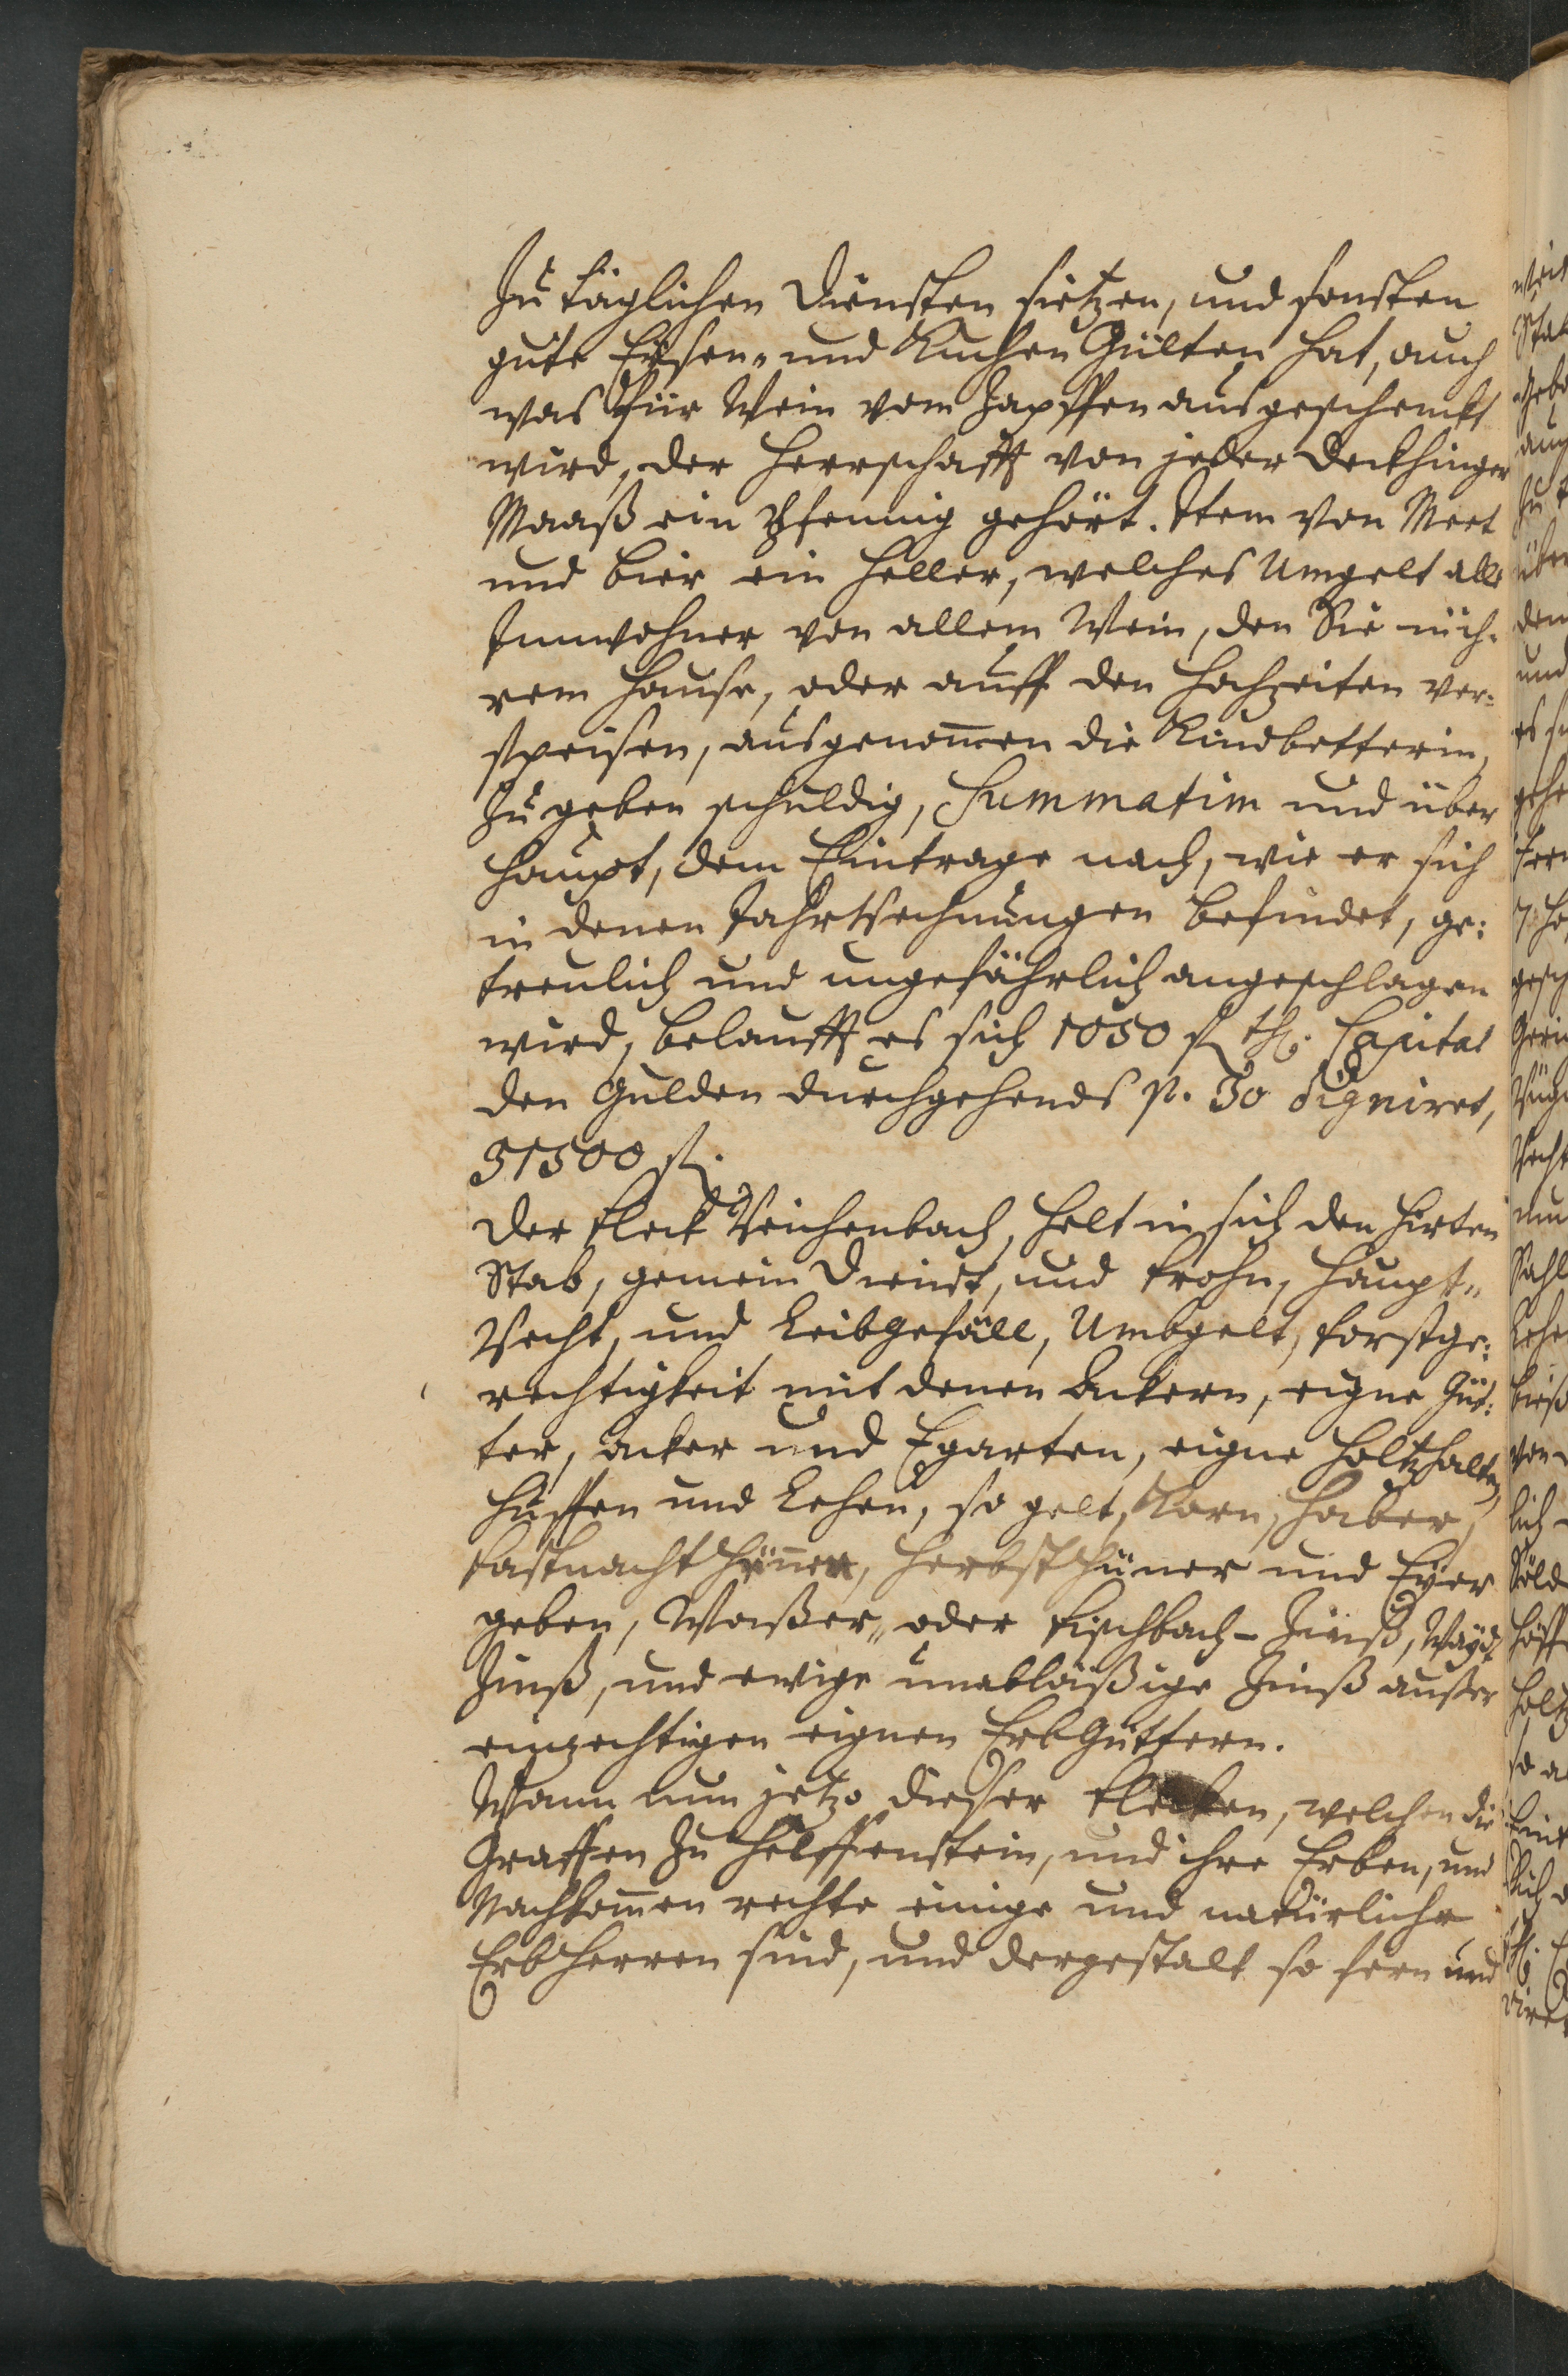 zu täglichen Diensten sietzen, und sonsten
gute Eysen- und Kuchen Gülten hat, auch
was für Wein vom Zapffen ausgeschenckt
wird, der Herrschafft von jeder Deckhinger
Maaß ein Pfennig gehört. Item von Meet
und Bier ein Heller, welches Umgelt alle
Innwohner von allem Wein, den Sie in ih-
rem Hause, oder auff den Hochzeiten ver-
speisen, ausgenom̄en die Kindbetterin,
zu geben schuldig, Summatim und über
Haupt, dem Eintrage nach, wie er sich
in denen Jahrsrechnungen befindet, ge-
treulich und ungefährlich angeschlagen
wird, belaufft es sich 1050 fl. Capital
den Gulden durchgehends p. 30 digniret,
31500 fl.
Der Fleck Reichenbach, helt in sich den Hirten
Stab, gemein Dienst, und Frohn, Haupt-
Recht, und Leibgefäll, Umbgelt, Forstge-
rechtigkeit mit denen Ackern, eigne Güt-
ter, Acker und Egarten, eigne Holtzhalten,
Huffen und Lehen, so gelt, Korn, Haber,
Fastnacht Hüner, Herbst Hüner und Eyer
geben, Waßer- oder Fischbach-Zinß, Wayd-
Zinß, und ewige unabläßige Zinß außer
einzechtigen eignen Erb Güttern.
Wann nun jetzo dieser Flecken, welchen die
Graffen zu Helffenstein, und ihre Erben, und
Nachkom̄en rechte einige und natürliche
Erb Herren sind, und dergestalt so fern und